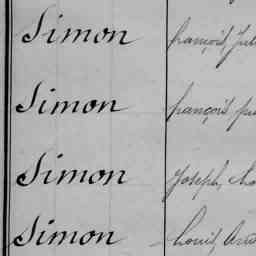 Simon François, Jul
Simon François
Simon Joseph,
Simon Louis,